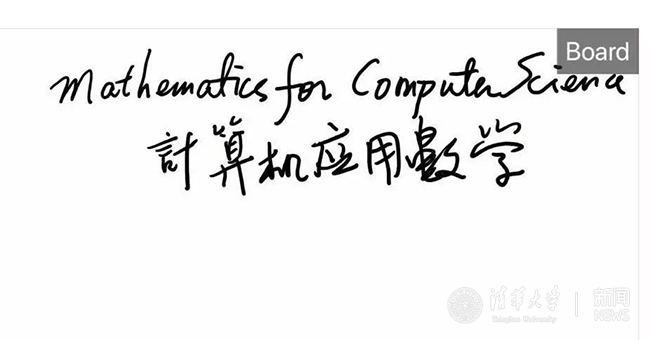 Board
Mathematics for Computer Science
計算机应用數学
清華大学 | 新闻
Tsinghua University NEWS